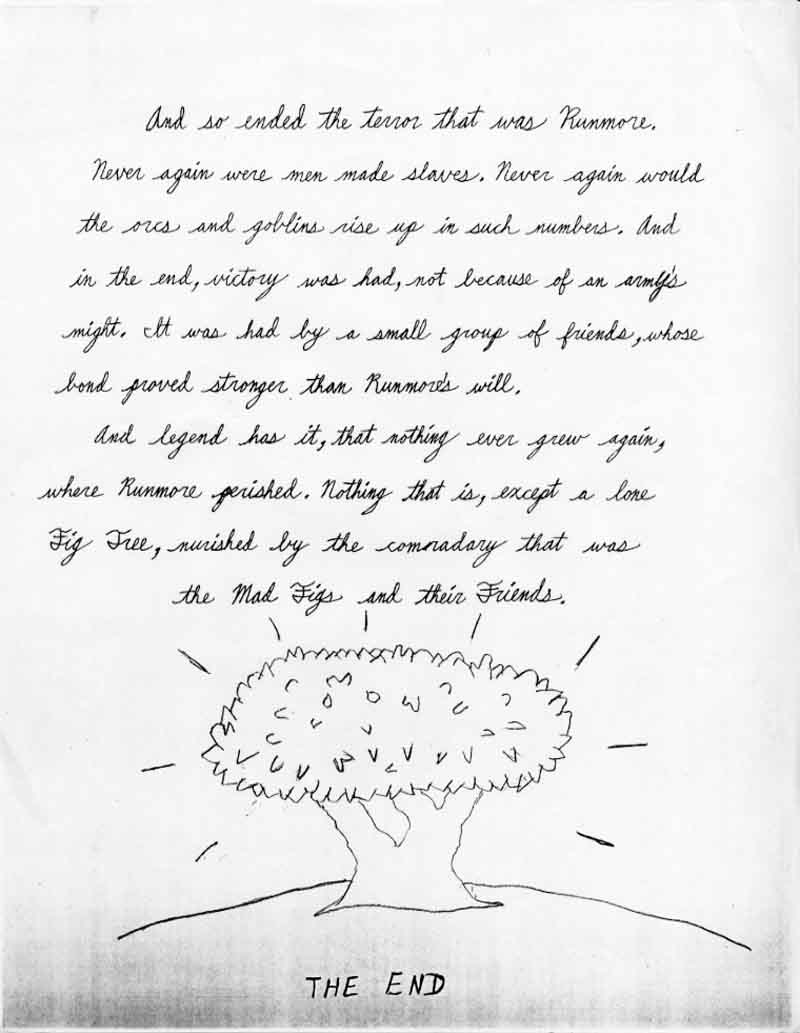 And so ended the terror that was Runmore.
Never again were men made slaves. Never again would
the orcs and goblins rise up in such numbers. And
in the end, victory was had, not because of an army's
might. It was had by a small group of friends, whose
bond proved stronger than Runmore's will.
And legend has it, that nothing ever grew again,
where Runmore perished. Nothing that is, except a lone
Fig Tree, nurished by the comradary that was
the Mad Figs and their Friends.
THE END